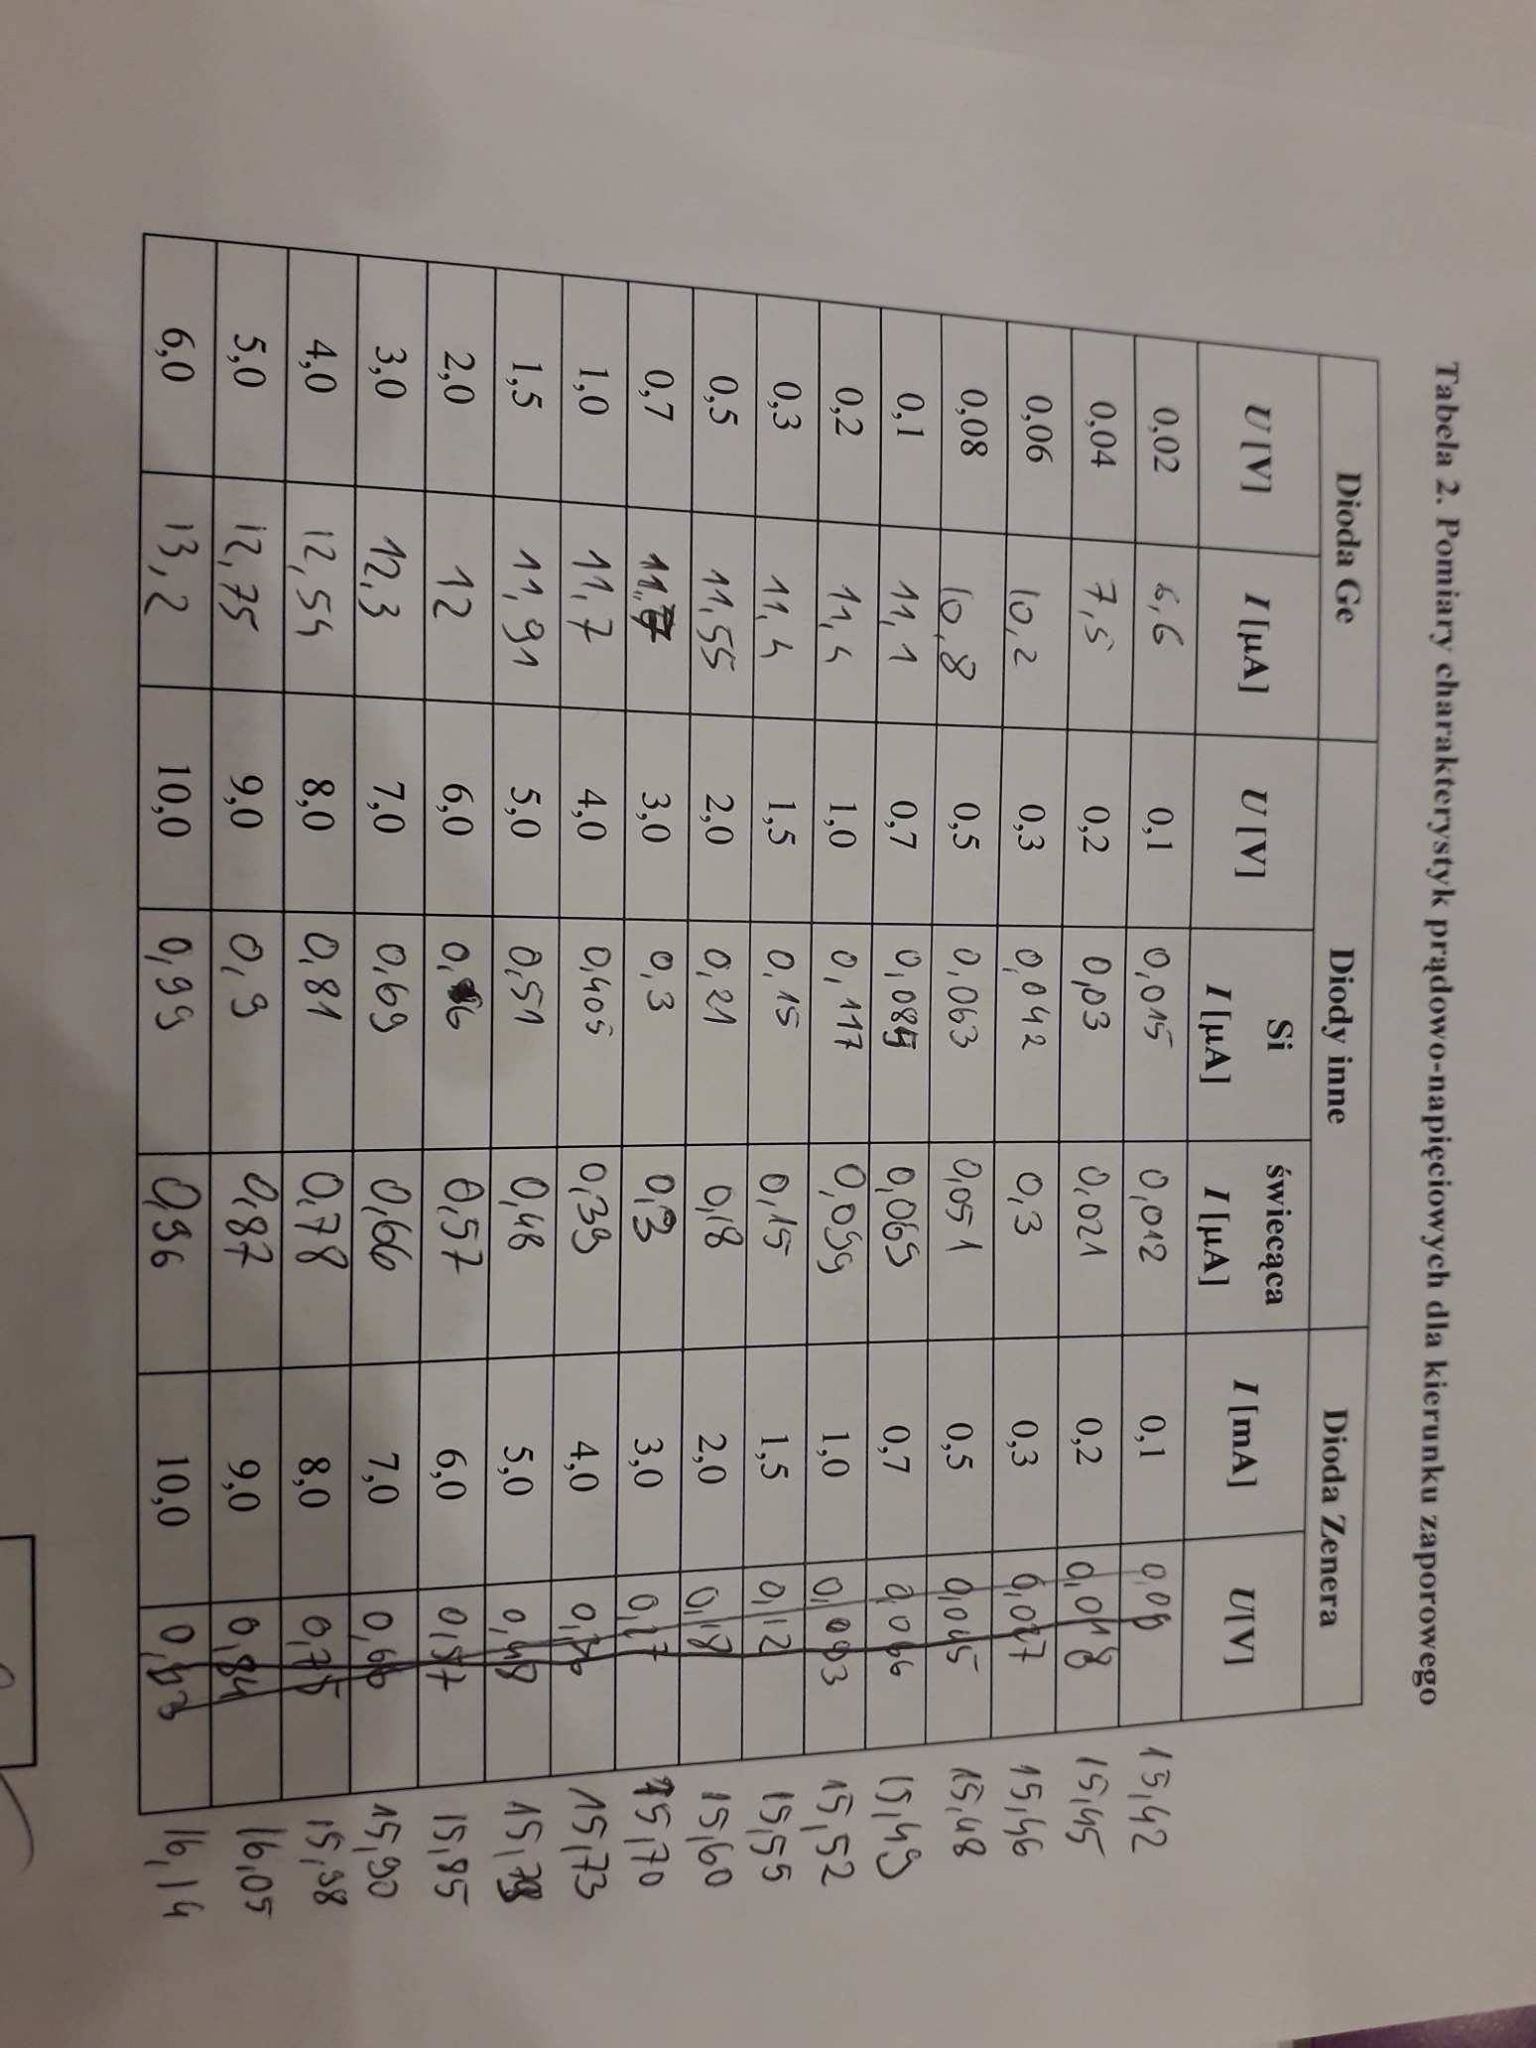 Tabela 2. Pomiary charakterystyk prądowo-napięciowych dla kierunku zaporowego
Dioda Ge Diody inne Dioda Zenera
U [V] I [μA] U [V] Si I [μA] świecąca I [μA] I [mA] U[V]
0,02 6,6 0,1 0,015 0,012 0,1 15,42
0,04 7,5 0,2 0,03 0,021 0,2 0,018 15,45
0,06 10,2 0,3 0,042 0,3 0,3 0,027 15,46
0,08 10,8 0,5 0,063 0,051 0,5 0,045 15,48
0,1 11,1 0,7 0,085 0,069 0,7 0,066 15,49
0,2 11,4 1,0 0,117 0,099 1,0 0,093 15,52
0,3 11,4 1,5 0,15 0,15 1,5 0,12 15,55
0,5 11,55 2,0 0,21 0,18 2,0 0,18 15,60
0,7 3,0 0,3 0,3 3,0 0,27 15,70
1,0 11,7 4,0 0,405 0,39 4,0 15,73
1,5 11,91 5,0 0,51 0,48 5,0 0,48 15,79
2,0 12 6,0 0,6 0,57 6,0 0,57 15,85
3,0 12,3 7,0 0,69 0,66 7,0 0,66 15,90
4,0 12,54 8,0 0,81 0,78 8,0 0,75 15,98
5,0 12,75 9,0 0,9 0,87 9,0 0,84 16,05
6,0 13,2 10,0 0,99 0,96 10,0 16,14